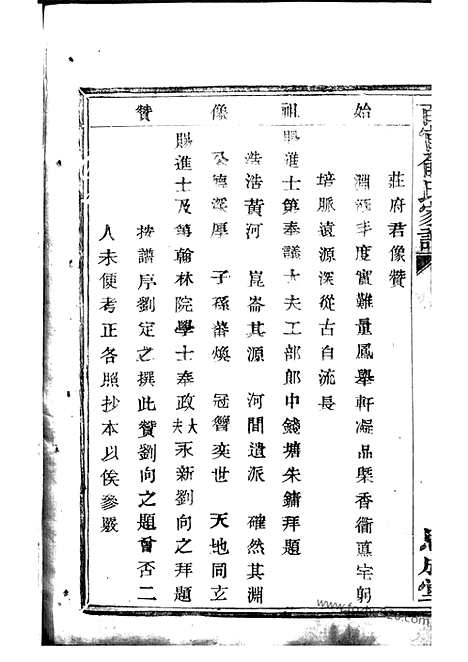 始祖像贊
莊府君像贊
淵深丰度實難量鳳舉軒凝品藥香衢蕙宅躬
培脈遠源深從古自流長
賜進士第奉議大夫工部郎中錢塘朱鏞拜題
浩浩黃河 崑崙其源 河間遺派 確然其淵
公德深厚 子孫蕃煥 冠簪奕世 天地同立
賜進士及第翰林院學士奉政大夫永新劉向之拜題
按譜序劉定之撰此贊劉向之題曾否二
人未便考正各照抄本以俟參嚴
俞氏家譜
成堂